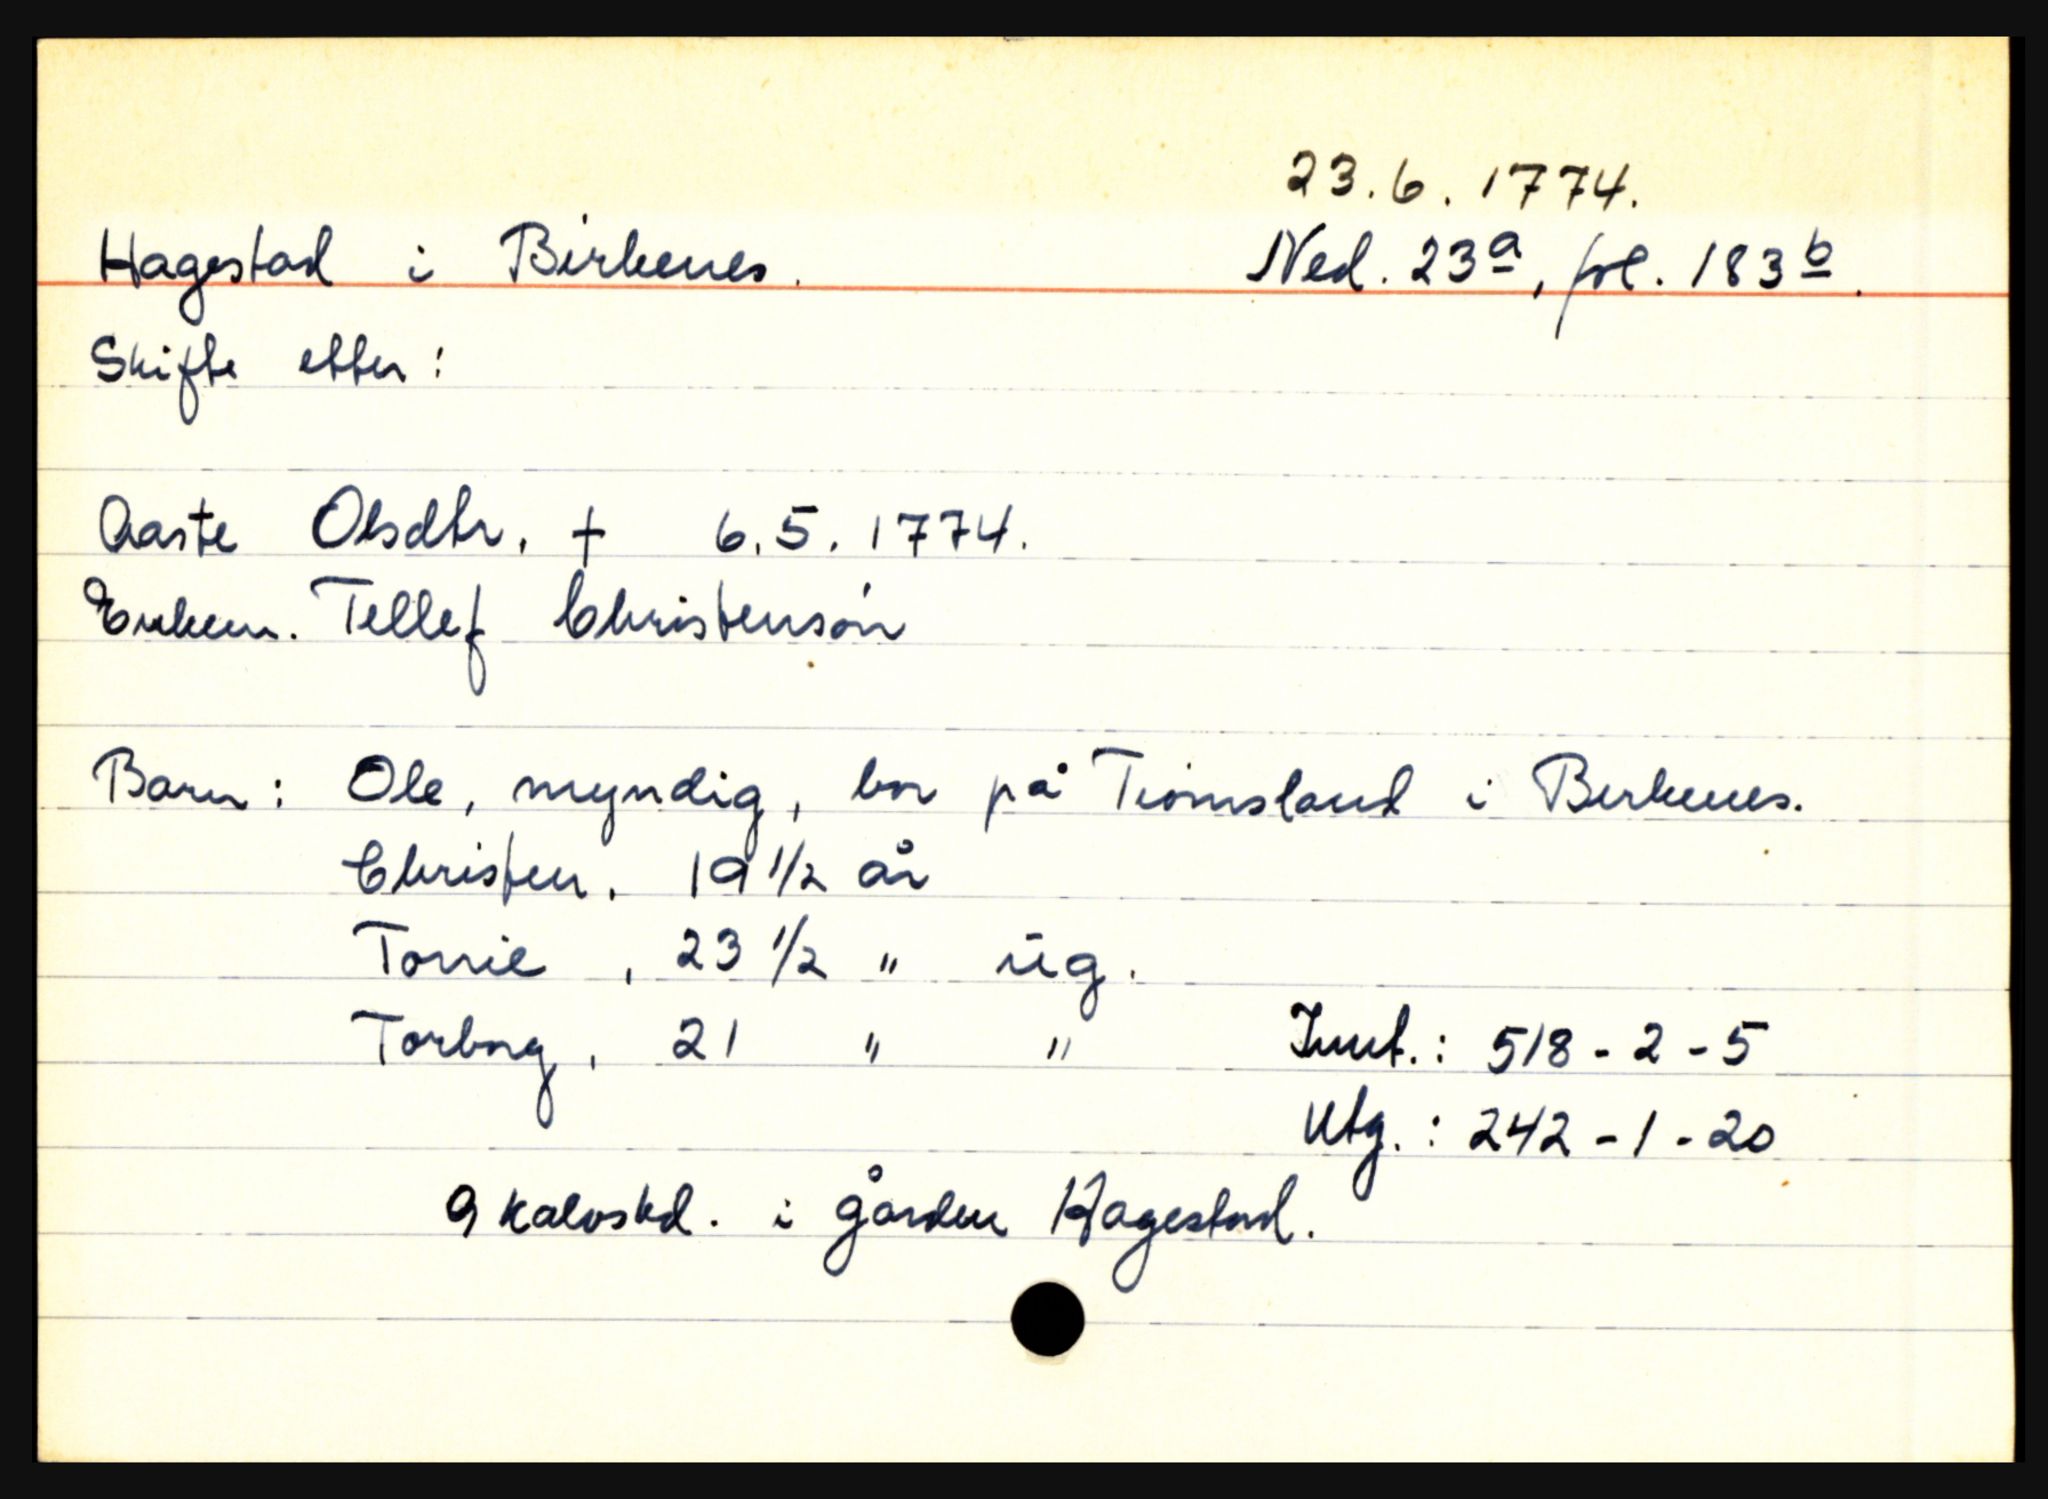 23.6.1774.
Hagestad i Birkenes. Ned. 23a, fol. 183b.
Skifte etter:
Aaste Olsdtr. † 6.5.1774.
Enkem. Tellef Christensøn
Barn: Ole, myndig, bor på Tiømsland i Birkenes.
Christen, 19 1/2 år
Torrie, 23 1/2 " ug.
Torborg, 21 " " Innt.: 518-2-5
Utg.: 242-1-20
9 kalvskd. i gården Hagestad.